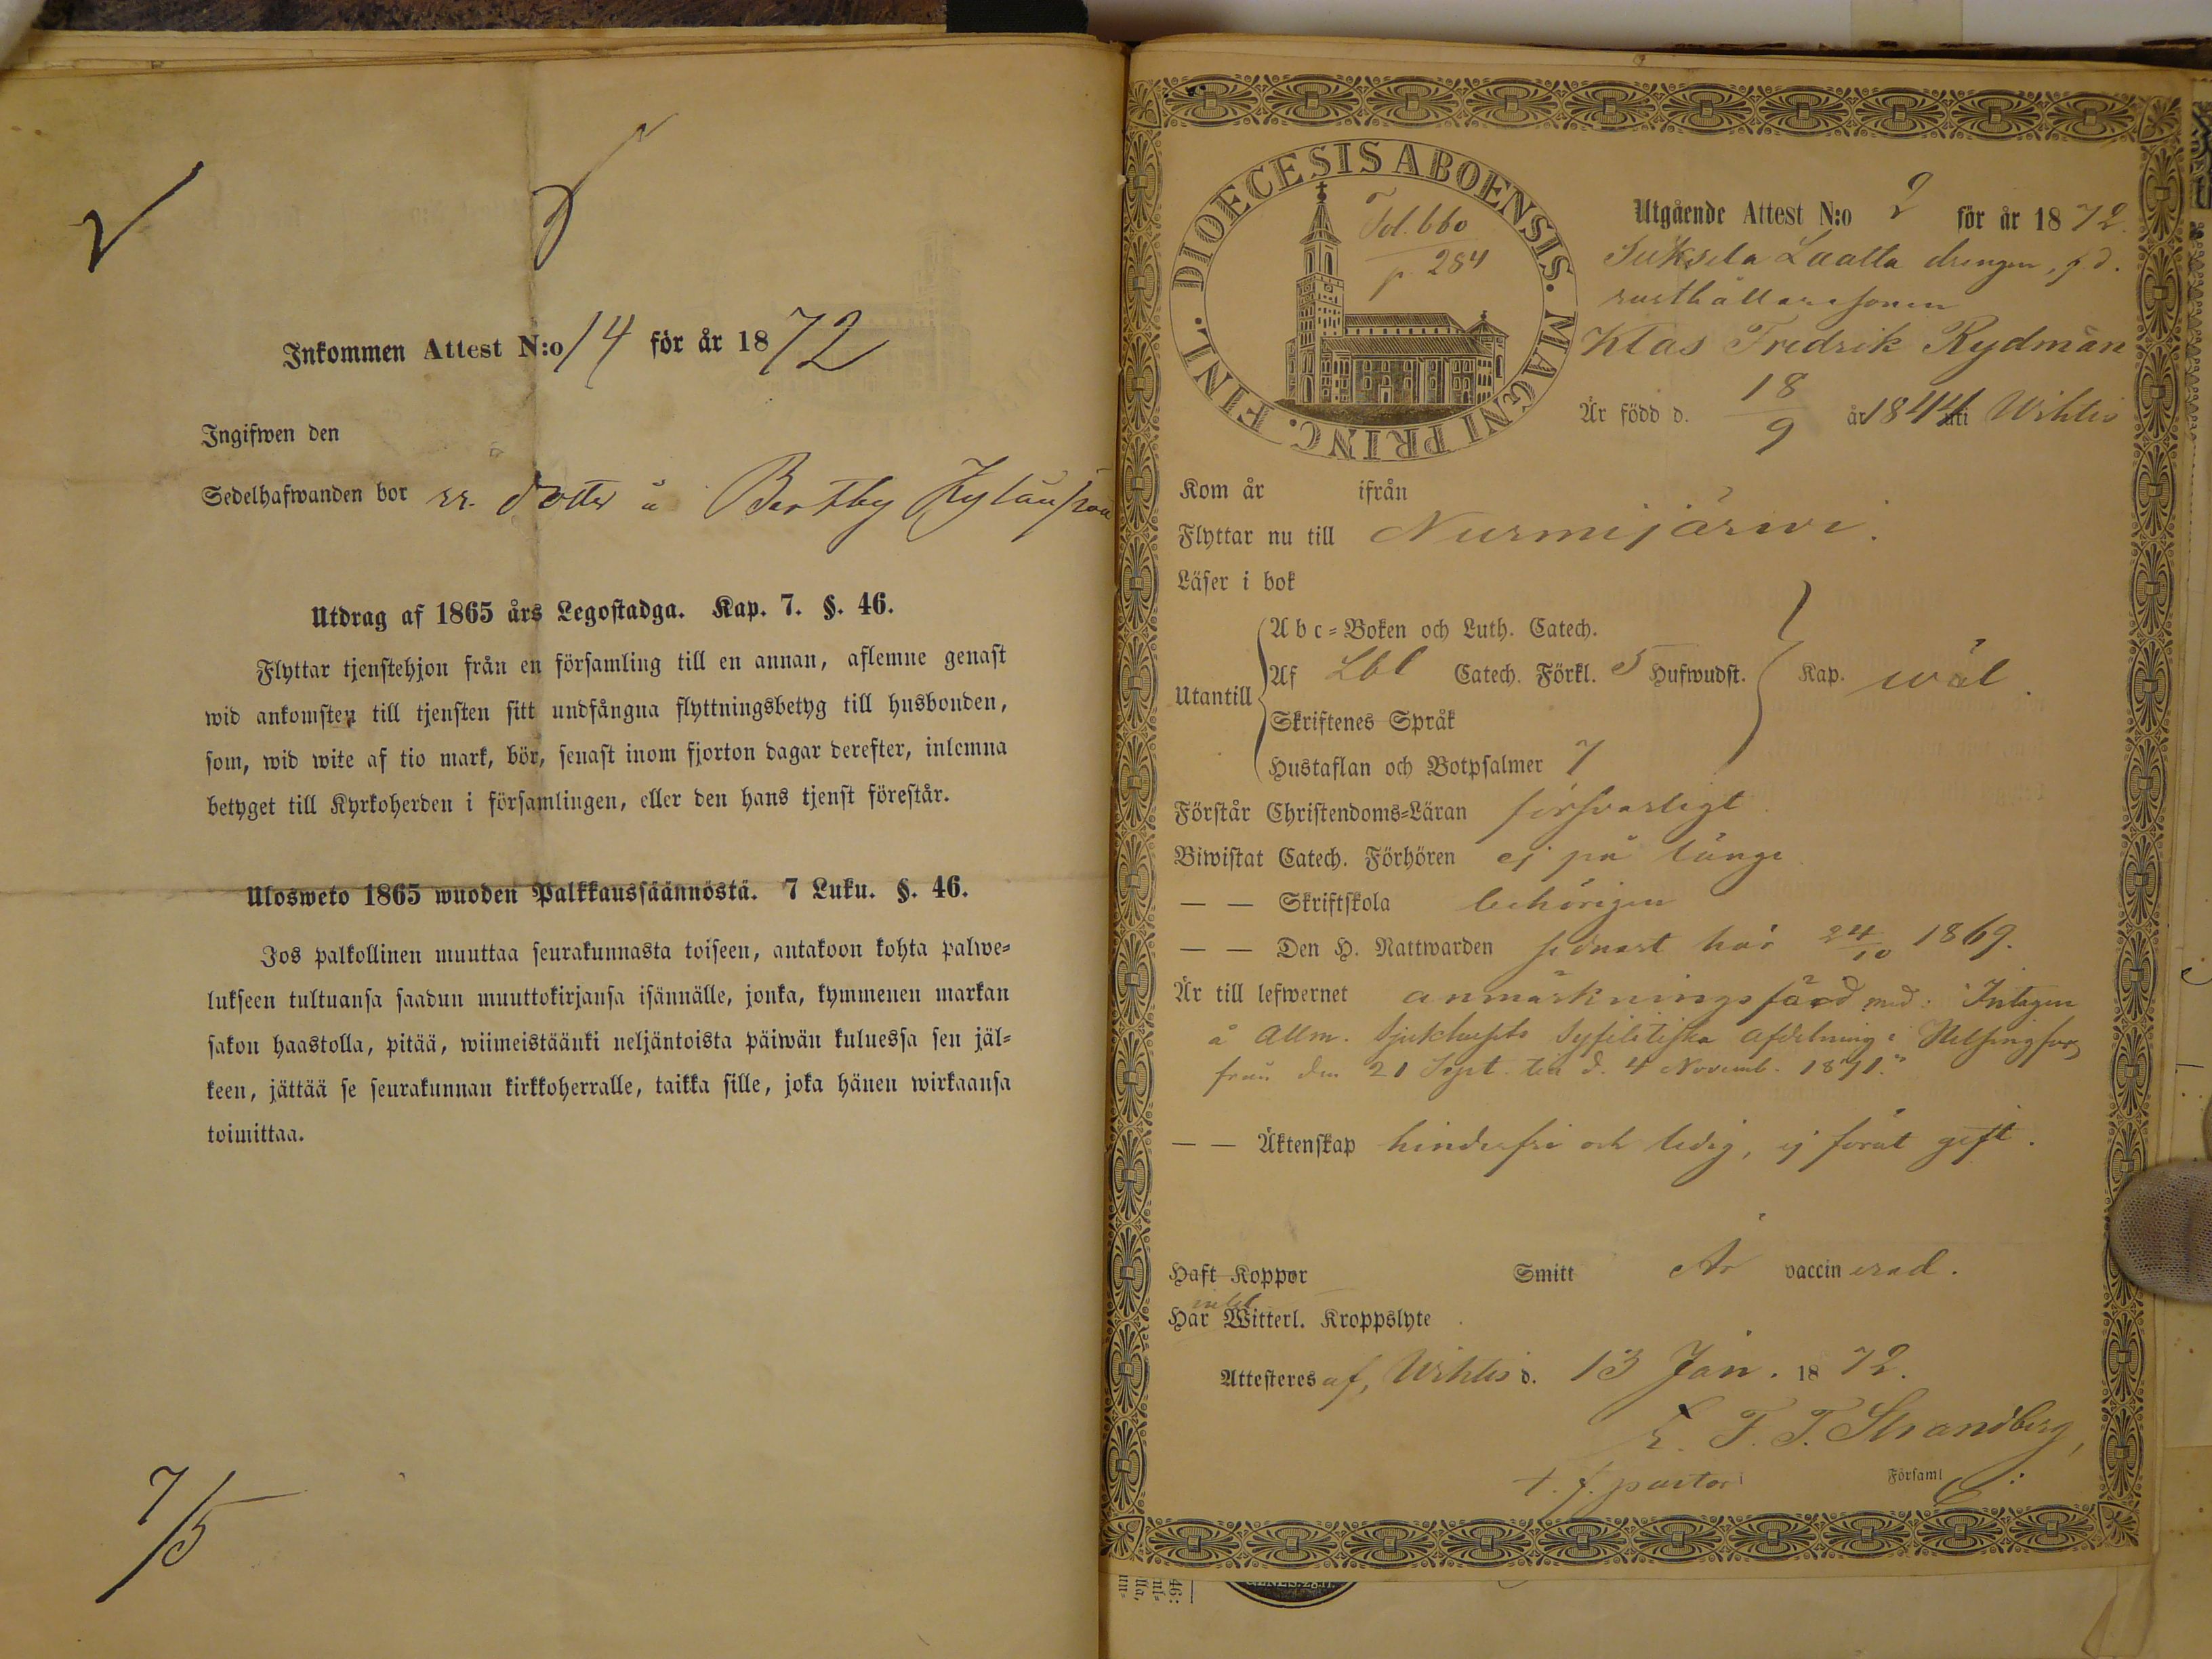 Inkommen Attest N:o 14 för år 1872
Ingifwen den
Sedelhafwanden bor dotter å
Utdrag af 1865 års Legostadga. Kap. 7. §. 46.
Flyttar tjenstehjon från en församling till en annan, aflemne genast
wid ankomsten till tjensten sitt undfångna flyttningsbetyg till husbonden,
som, wid wite af tio mark, bör, senast inom fjorton dagar derefter, inlemna
betyget till Kyrkoherden i församlingen, eller den hans tjenst förestår.
Ulosweto 1865 wuoden Palkkaussäännöstä. 7 Luku. §. 46.
Jos palkollinen muuttaa seurakunnasta toiseen, antakoon kohta palwe=
lukseen tultuansa saadun muuttokirjansa isännälle, jonka, kymmenen markan
sakon haastolla, pitää, wiimeistäänki neljäntoista päiwän kuluessa sen jäl=
keen, jättää se seurakunnan kirkkoherralle, taikka sille, joka hänen wirkaansa
toimittaa.
7/5
DIOECESIS ABOENSIS. MAGNI PRINC. FINL.
Fol. 660
p. 284
Utgående Attest N:o 2 för år 1872.
Suksela Laalla drengen, f d.
rusthållaresonen
Klas Fredrik Rydman
Är född d. 18/9 år 1844 uti Wihtis
Kom år ifrån
Flyttar nu till Nurmijärwi.
Läser i bok
Utantill
A b c=Boken och Luth. Catech.
Af Lbl Catech. Förkl. 5 Hufwudst. Kap. wäl.
Skriftenes Språk
Hustaflan och Botpsalmer 7
Förstår Christendoms=Läran försvarligt
Biwistat Catech. Förhören ej på länge
— — Skriftskola behörigen
— — Den H. Nattwarden sednast här 24/10 1869.
Är till lefwernet anmärkningsfärd med: "Intagen
å Allm. Sjukhusets Syfilitiska afdelning i Helsingfors
från den 21 Sept. till d. 4 Novemb. 1871."
— — Äktenskap hinderfri och ledig, ej förut gift.
Haft Koppor Smitt Är vaccinerad.
Har intet Witterl. Kroppslyte
Attesteres af, Wihtis d. 13 Jan. 1872.
F. T. Strandberg,
t. f. pastor i Församl